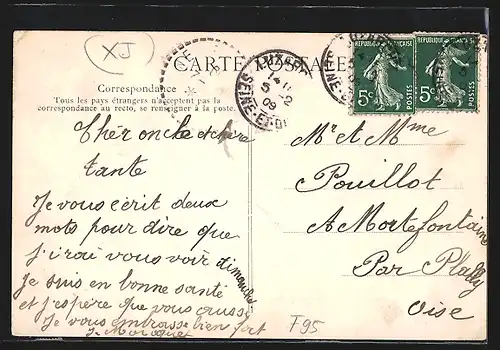 XJ
CARTE POSTALE
Correspondance
Tous les pays étrangers n'acceptent pas la
correspondance au recto, se renseigner à la poste.
LUZARCHES
14
5 - 2
08
SEINE-ET-OISE
REPUBLIQUE FRANÇAISE
5c
POSTES
REPUBLIQUE FRANÇAISE
5c
POSTES
Cher oncle et chère
tante
Je vous écrit deux
mots pour dire que
j'irai vous voir dimanche
je suis en bonne santé
et j'espère que vous aussi
Je vous embrasse bien fort
Mr et Mme
Pouillot
A Mortefontaine
Par Plailly
Oise
F95